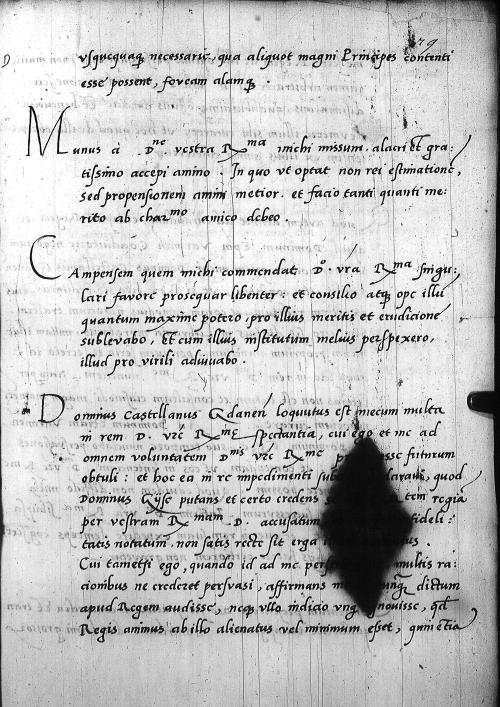 79
vsquequaq necessarie, qua aliquot magni Principes contenti
esse possent, foveam alamq.
Munus á Dne vestra Rma michi missum, alacri et gra-
tissimo accepi animo. In quo ut optat non rei estimatione,
sed propensionem animi metior. et facio tanti quanti me-
rito ab charmo amico debeo.
Campensem quem michi commendat D. vra Rma singu-
lari favore prosequar libenter: et consilio atq ope illu
quantum maxime potero, pro illius meritis et eruditione
sublevabo, Et cum illius institutum melius perspexero,
illud pro virili adiuvabo.
Dominus Castellanus Gdaneñ loquutus est mecum multa
in rem D. vrē Rmē spectantia, cui ego et me ad
omnem voluntatem Dnis vrē Rme futurum
obtuli: et hoc ea in re impedimenti quod
Dominus putans et certo credens regia
per vestram Rmam D. accusatum fideli-
tatis notatum, non satis recte sit erga
Cui tametsi ego, quando id ad me multis ra-
cionibus ne crederet persuasi, affirmans dictum
apud Regem audisse, neq ullo indicio unq novisse, qd
Regis animus ab illo alienatus vel minimum esset, quin etia